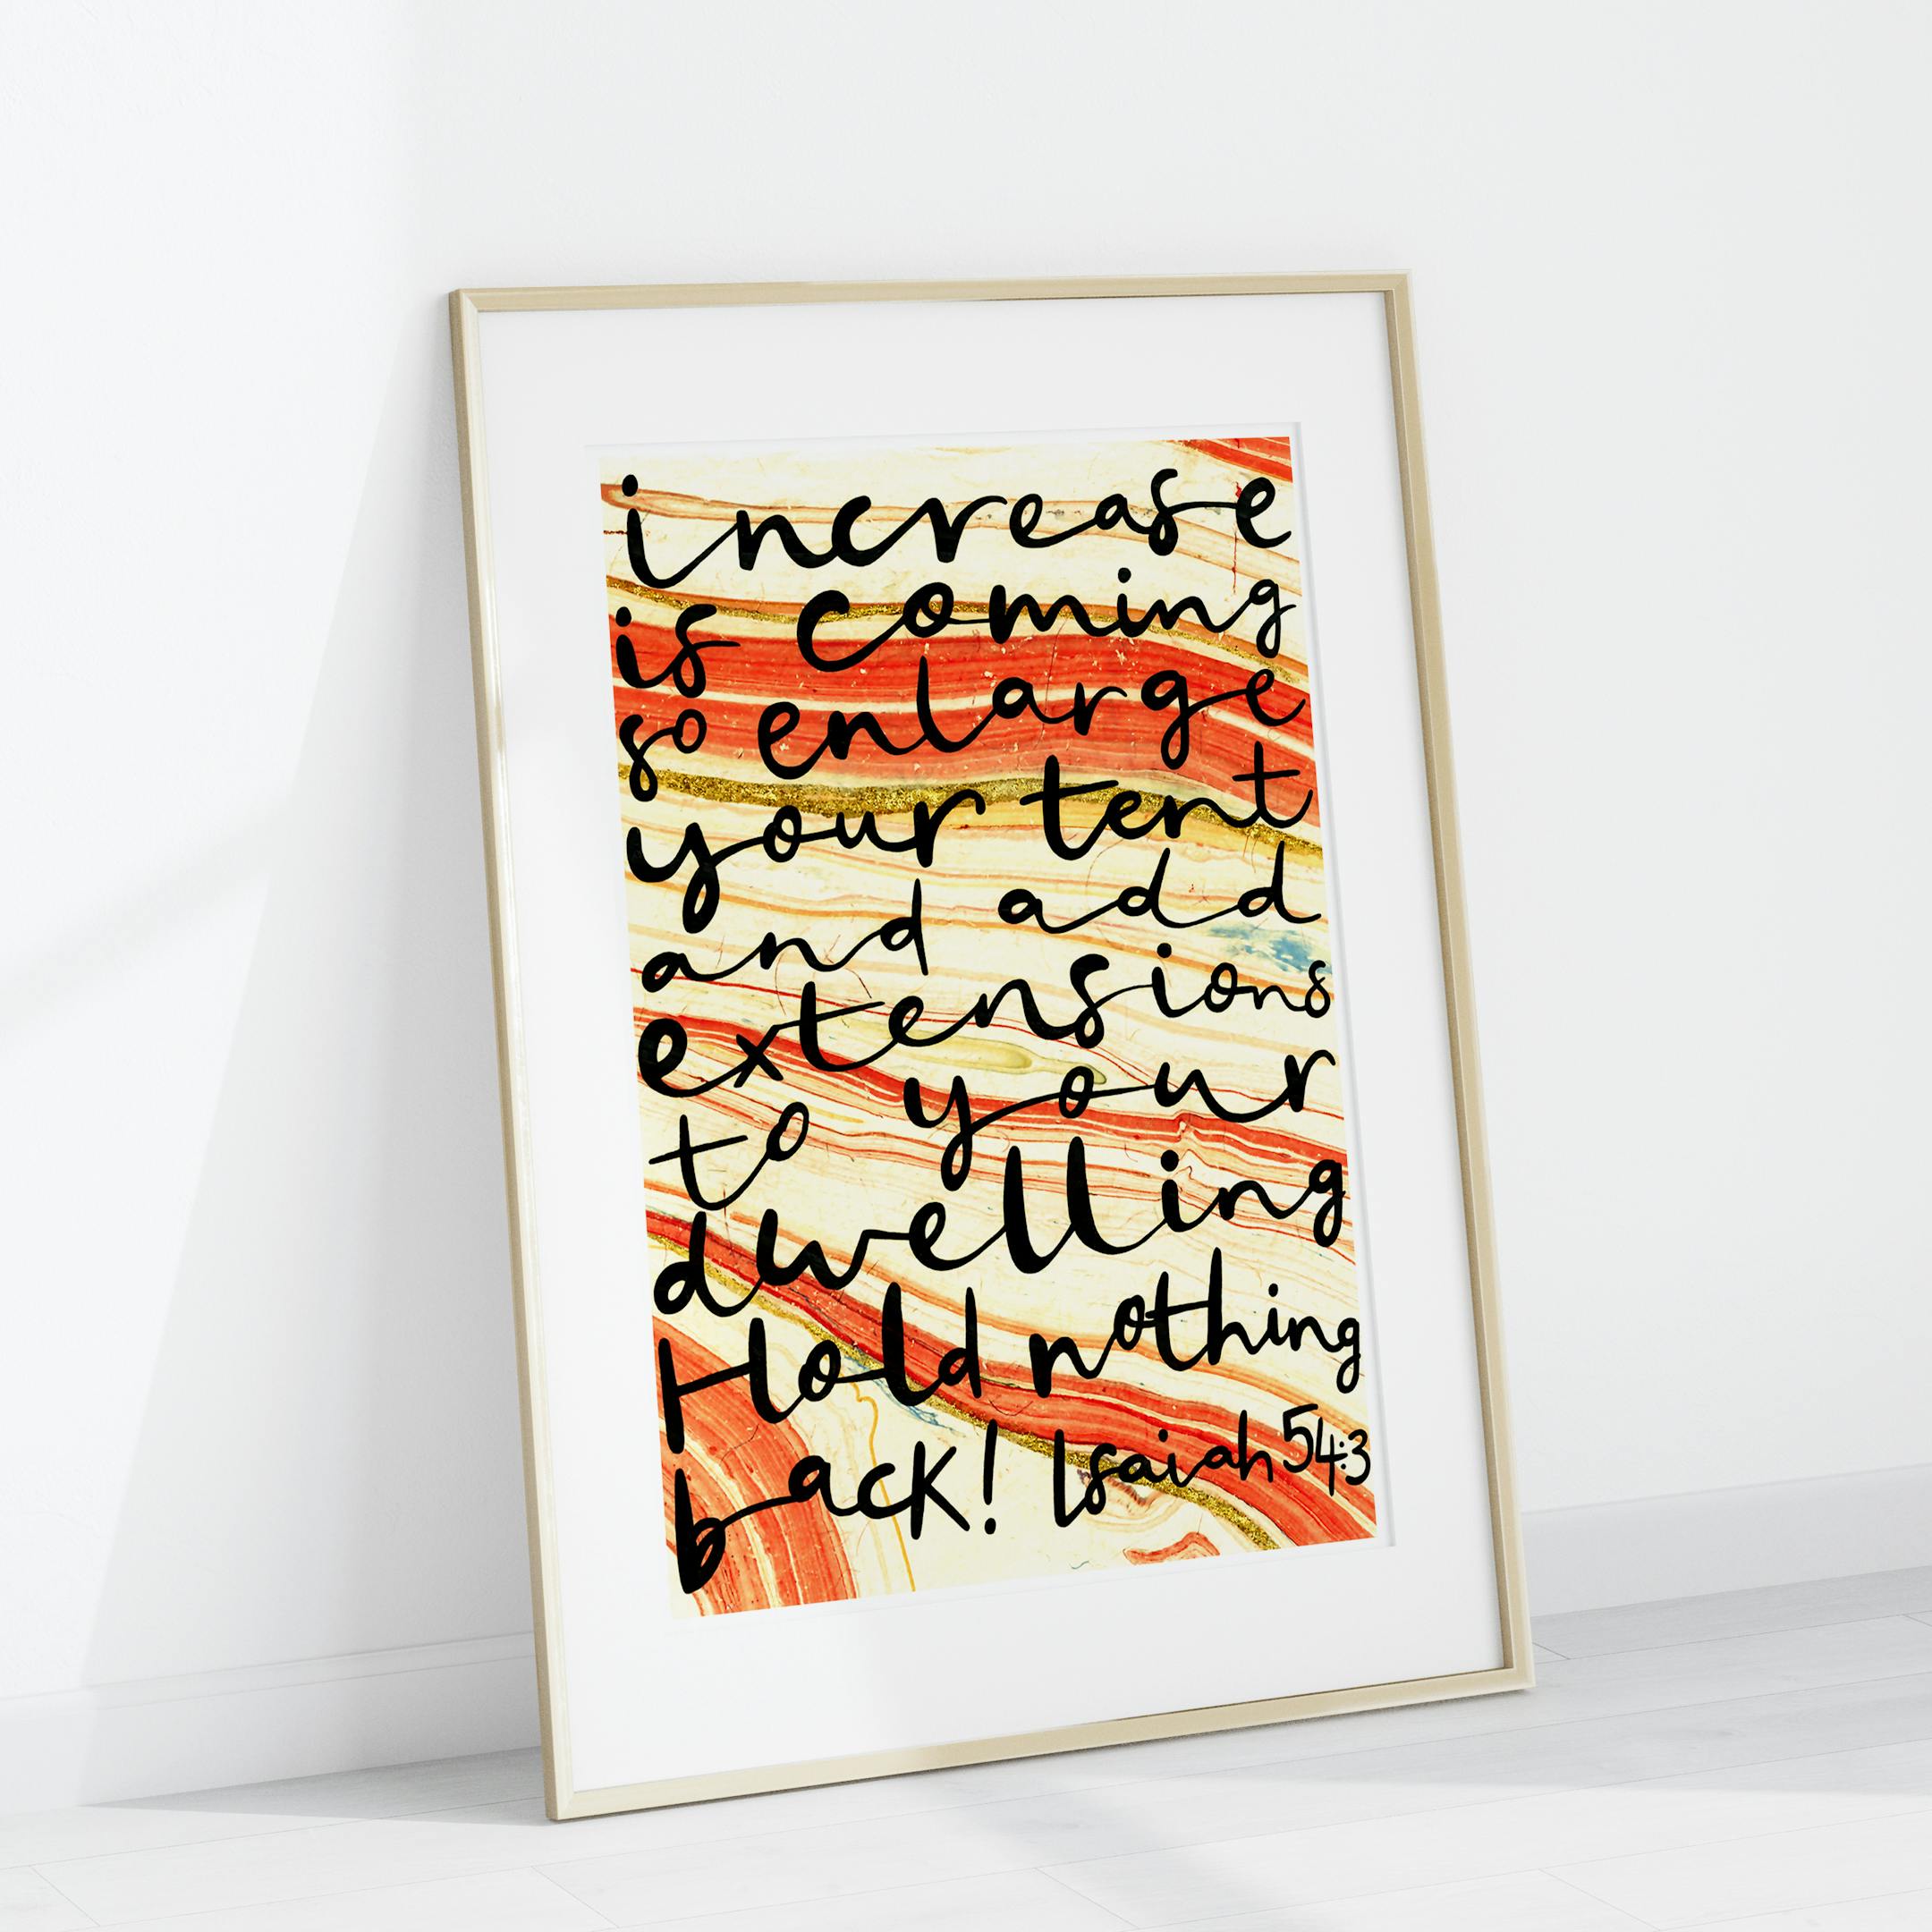 increase
is coming
so enlarge
your tent
and add
extensions
to your
dwelling
Hold nothing
back! Isaiah 54:3